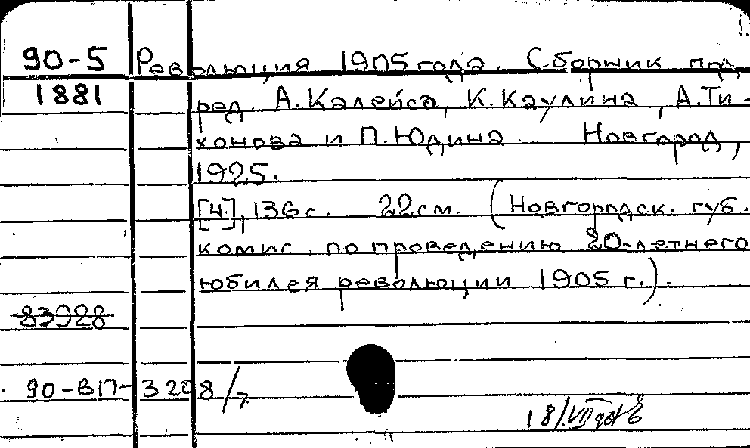 90-5 Революция 1905 года. Сборник под
1881 ред. А. Калейса, К. Каулина, А. Ти-
хонова и П. Юдина. Новгород,
1925.
[4], 136 с. 22 см. (Новгородск. губ.
комис. по проведению 20-летнего
юбилея революции 1905 г.).
83928
90-ВП-3208/7
18/VII